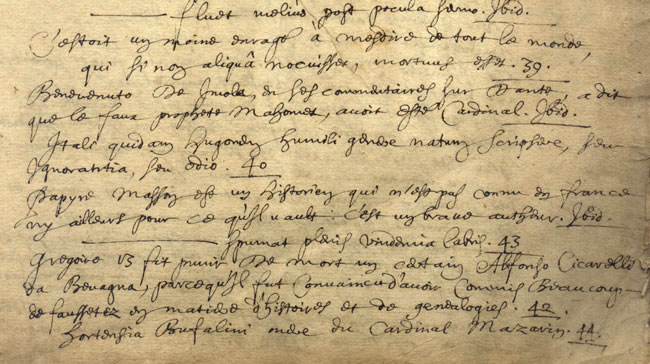 fluet melius post pocula sermo. Ibid.
C'estoit un moine enragé à mesdire de tout le monde,
qui si non aliquâ nocuisset, mortuus esset. 39.
Benevenuto de Imola, en ses commentaires sur Dante, a dit
que le faux prophete Mahomet, avoit esté Cardinal. Ibid.
Itali quidam Hugonem humili genere natum scripsere, seu
ignorantia, seu odio. 40
Papyre Masson est un historien qui n'est pas connu en france
ny ailleurs pour ce qu'il vault : c'est un brave autheur. Ibid.
spumat plenis vindemia labris. 43
Gregoire 13 fit punir de mort un certain Alfonso Cicarello
da Bevagna, parcequ'il fut convaincu d'avoir commis beaucoup
de faussetez en matiere d'histoires et de genealogies. 42.
Hortensia Bufalini mere du Cardinal Mazarin. 44.